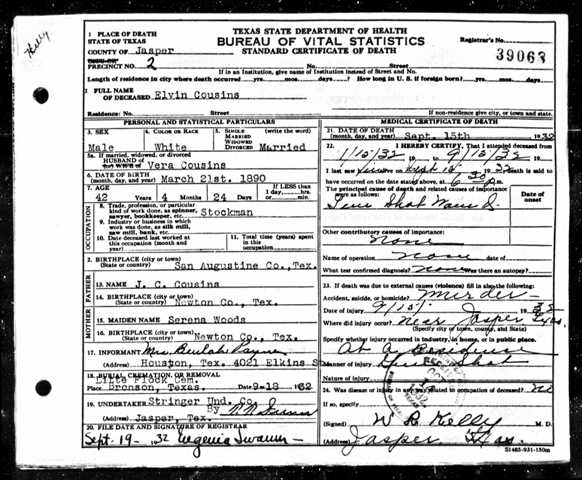 Kelly
TEXAS STATE DEPARTMENT OF HEALTH
BUREAU OF VITAL STATISTICS
STANDARD CERTIFICATE OF DEATH
1 PLACE OF DEATH
STATE OF TEXAS
COUNTY OF Jasper
PRECINCT NO. 2
Registrar's No.
39063
No. Street
If in an Institution, give name of Institution instead of Street and No.
Length of residence in city where death occurred yrs. mos. days. How long in U. S. if foreign born? yrs. mos. days.
2 FULL NAME
OF DECEASED Elvin Cousins
Residence: No. Street
If non-residence give city, or town and state.
PERSONAL AND STATISTICAL PARTICULARS
3. SEX 4. COLOR OR RACE 5. SINGLE MARRIED WIDOWED DIVORCED (write the word)
Male White Married
5a. If married, widowed, or divorced
HUSBAND OF
Vera Cousins
6. DATE OF BIRTH
(month, day, and year) March 21st. 1890
7. AGE Years Months Days If LESS than
1 day, hrs.
or min.
42 4 24
OCCUPATION
8. Trade, profession, or particular
kind of work done, as spinner,
sawyer, bookkeeper, etc. Stockman
9. Industry or business in which
work was done, as silk mill,
saw mill, bank, etc.
10. Date deceased last worked at
this occupation (month and
year)
11. Total time (years) spent
in this
occupation
2. BIRTHPLACE (city or town)
(State or country) San Augustine Co.,Tex.
FATHER
13. NAME J. C. Cousins
14. BIRTHPLACE (city or town)
(State or country) Newton Co., Tex.
MOTHER
15. MAIDEN NAME Serena Woods
16. BIRTHPLACE (city or town)
(State or country) Newton Co., Tex.
17. INFORMANT Mrs. Beulah
(Address) Houston, Tex. 4021 Elkins St
18. BURIAL, CREMATION, OR REMOVAL
Litte Flock Cem.
Place Bronson, Texas. 9-18 1932
19. UNDERTAKER Stringer Und. Co.
By
(Address) Jasper, Tex.
20. FILE DATE AND SIGNATURE OF REGISTRAR
Sept. 19- 32 Eugenia
MEDICAL CERTIFICATE OF DEATH
21. DATE OF DEATH
(month, day, and year) Sept. 15th 1932
22. I HEREBY CERTIFY, That I attended deceased from
I last saw alive on Death is said to
have occurred on the date stated above, at
The principal cause of death and related causes of importance
were as follows:
Date of
onset
Gun Shot
Other contributory causes of importance:
None
Name of operation None date of
What test confirmed diagnosis? None Was there an autopsy?
23. If death was due to external causes (violence) fill in also the following:
Accident, suicide, or homicide? Murder
Date of injury 9/15/ 1932
Where did injury occur? Near Jasper Texas
(Specify city or town, county, and State)
Specify whether injury occurred in industry, in home, or in public place
At A Residence
Manner of injury Gun Shot
Nature of injury
24. Was disease or injury in any way related to occupation of deceased? No
If so, specify
(Signed) W R Kelly M. D.
(Address) Jasper Texas
S1485-931-150m